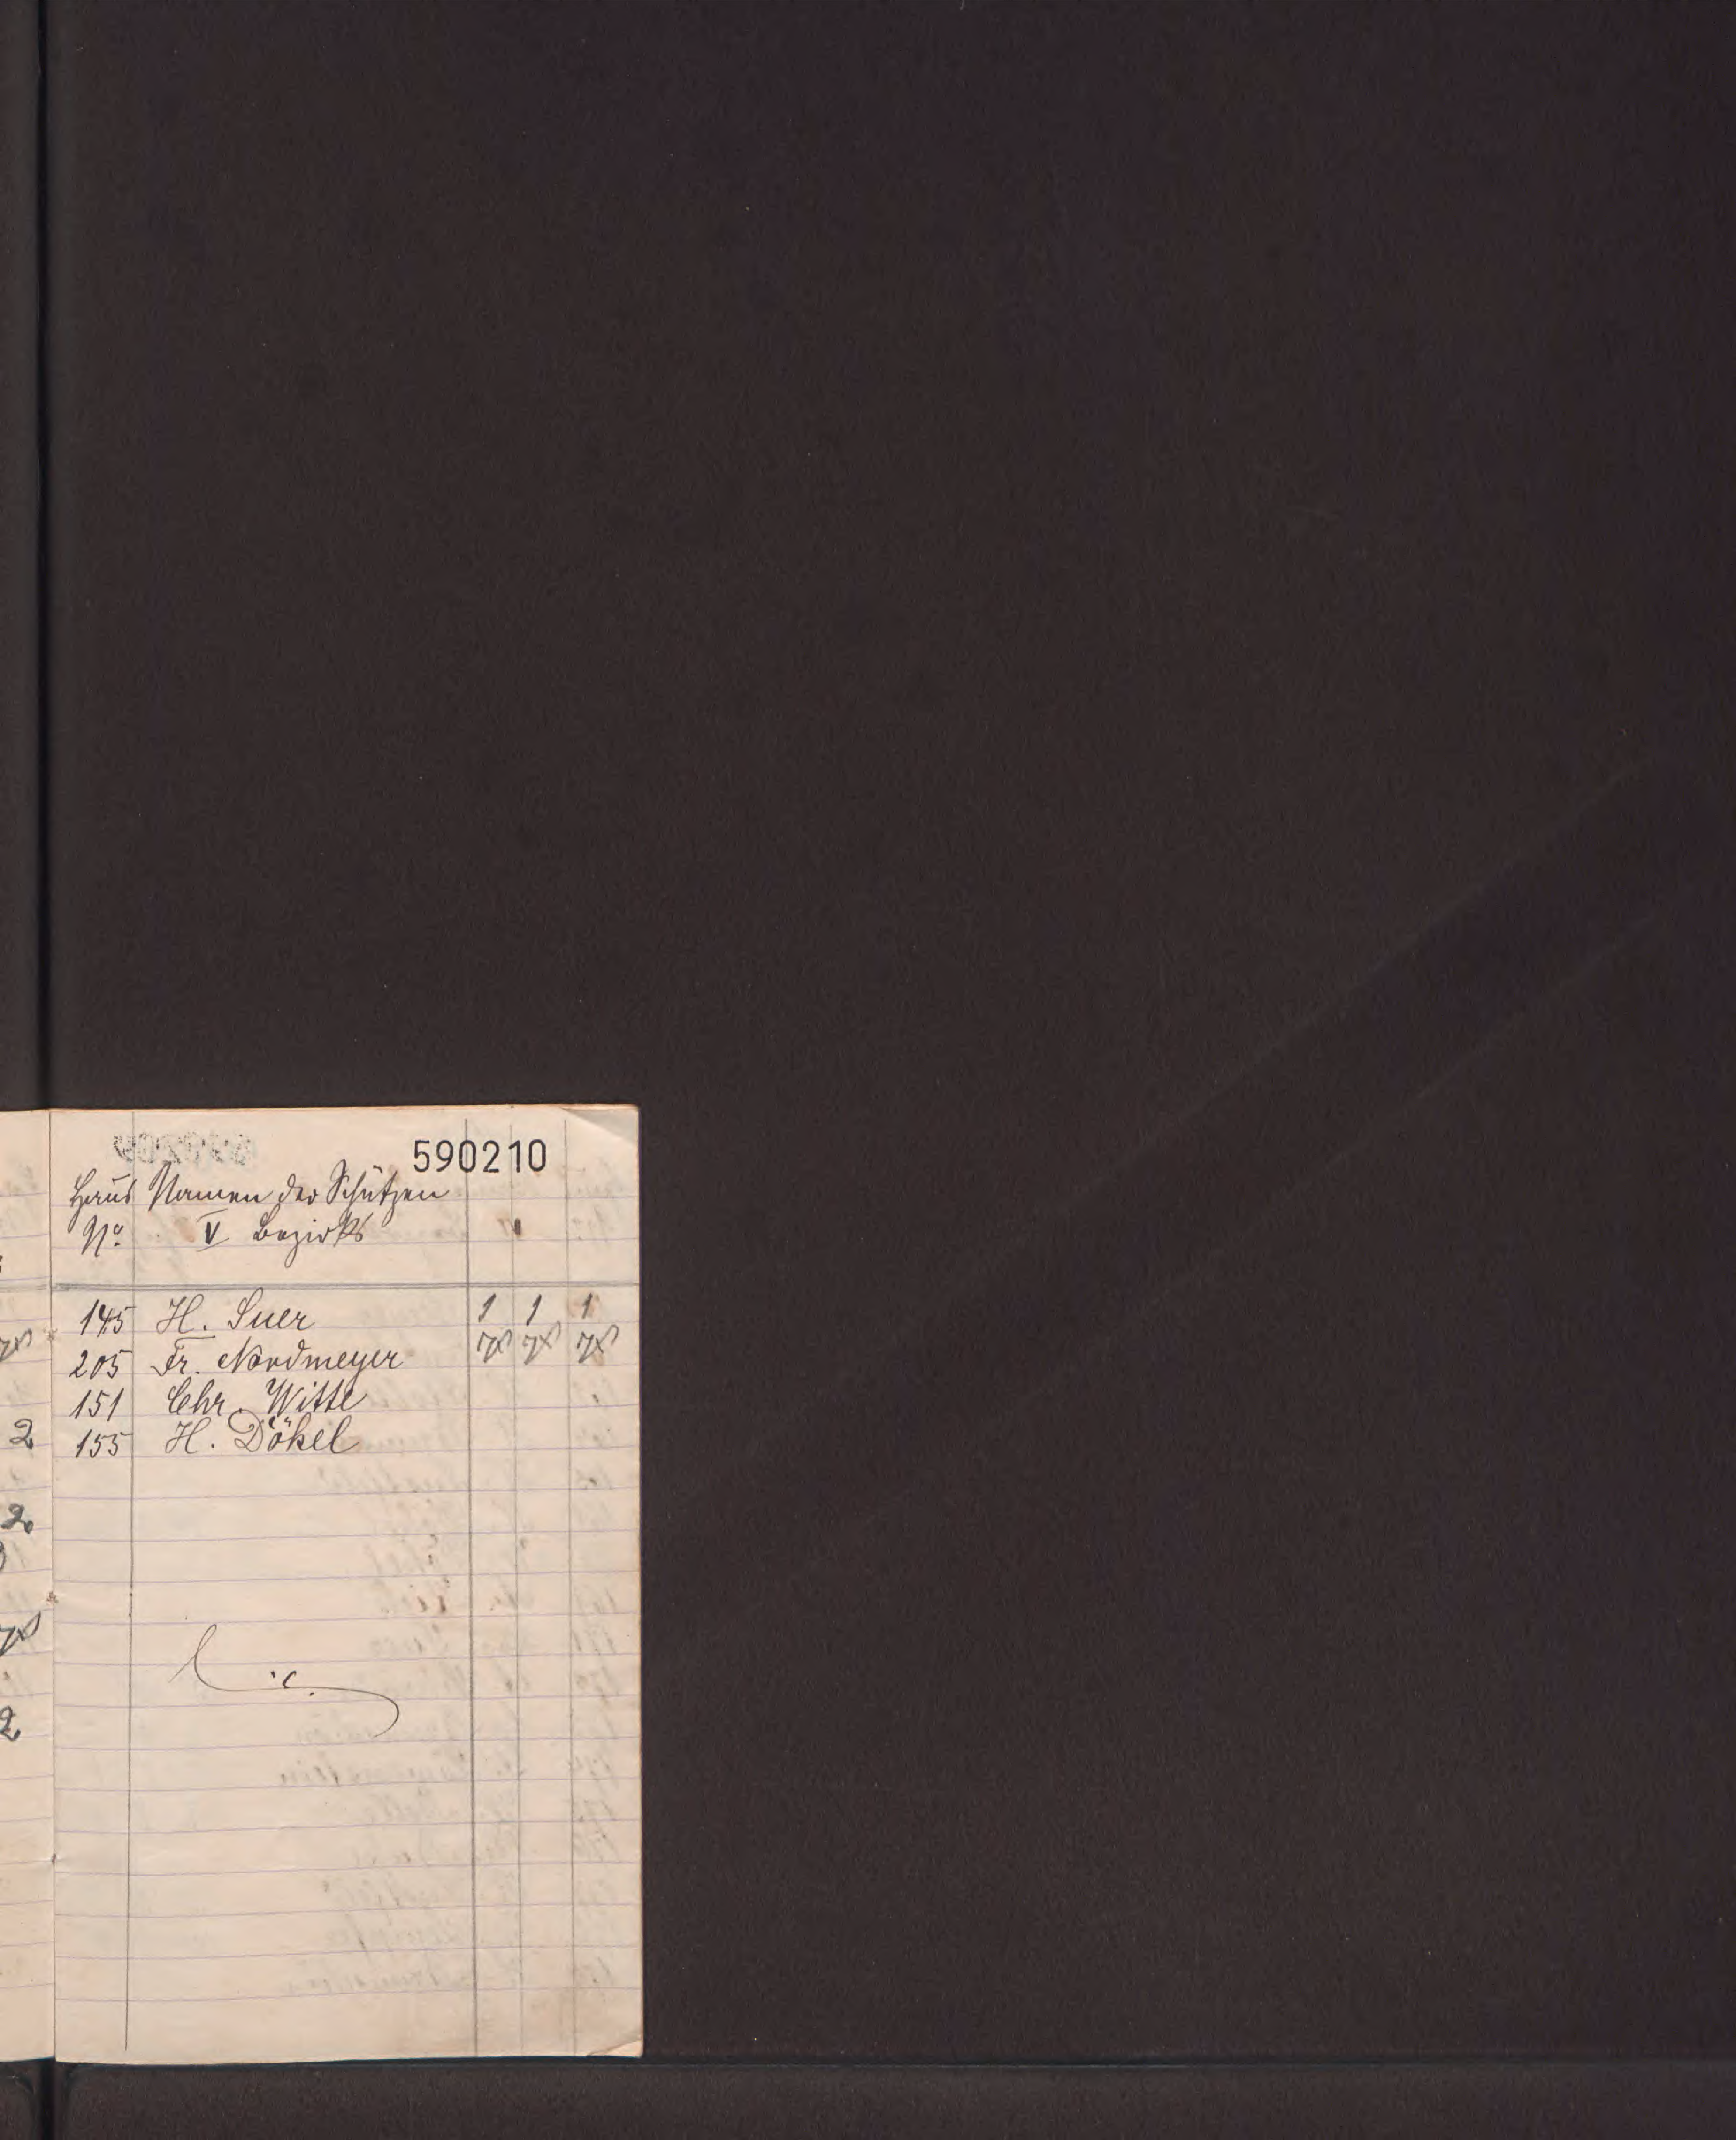 590210
Haus Namen der Schützen
No. V Bezirks
145 H. Suer 1 1 1
205 Fr. Nordmeyer
151 Chr. Witte
155 H. Dökel
2
2.
2